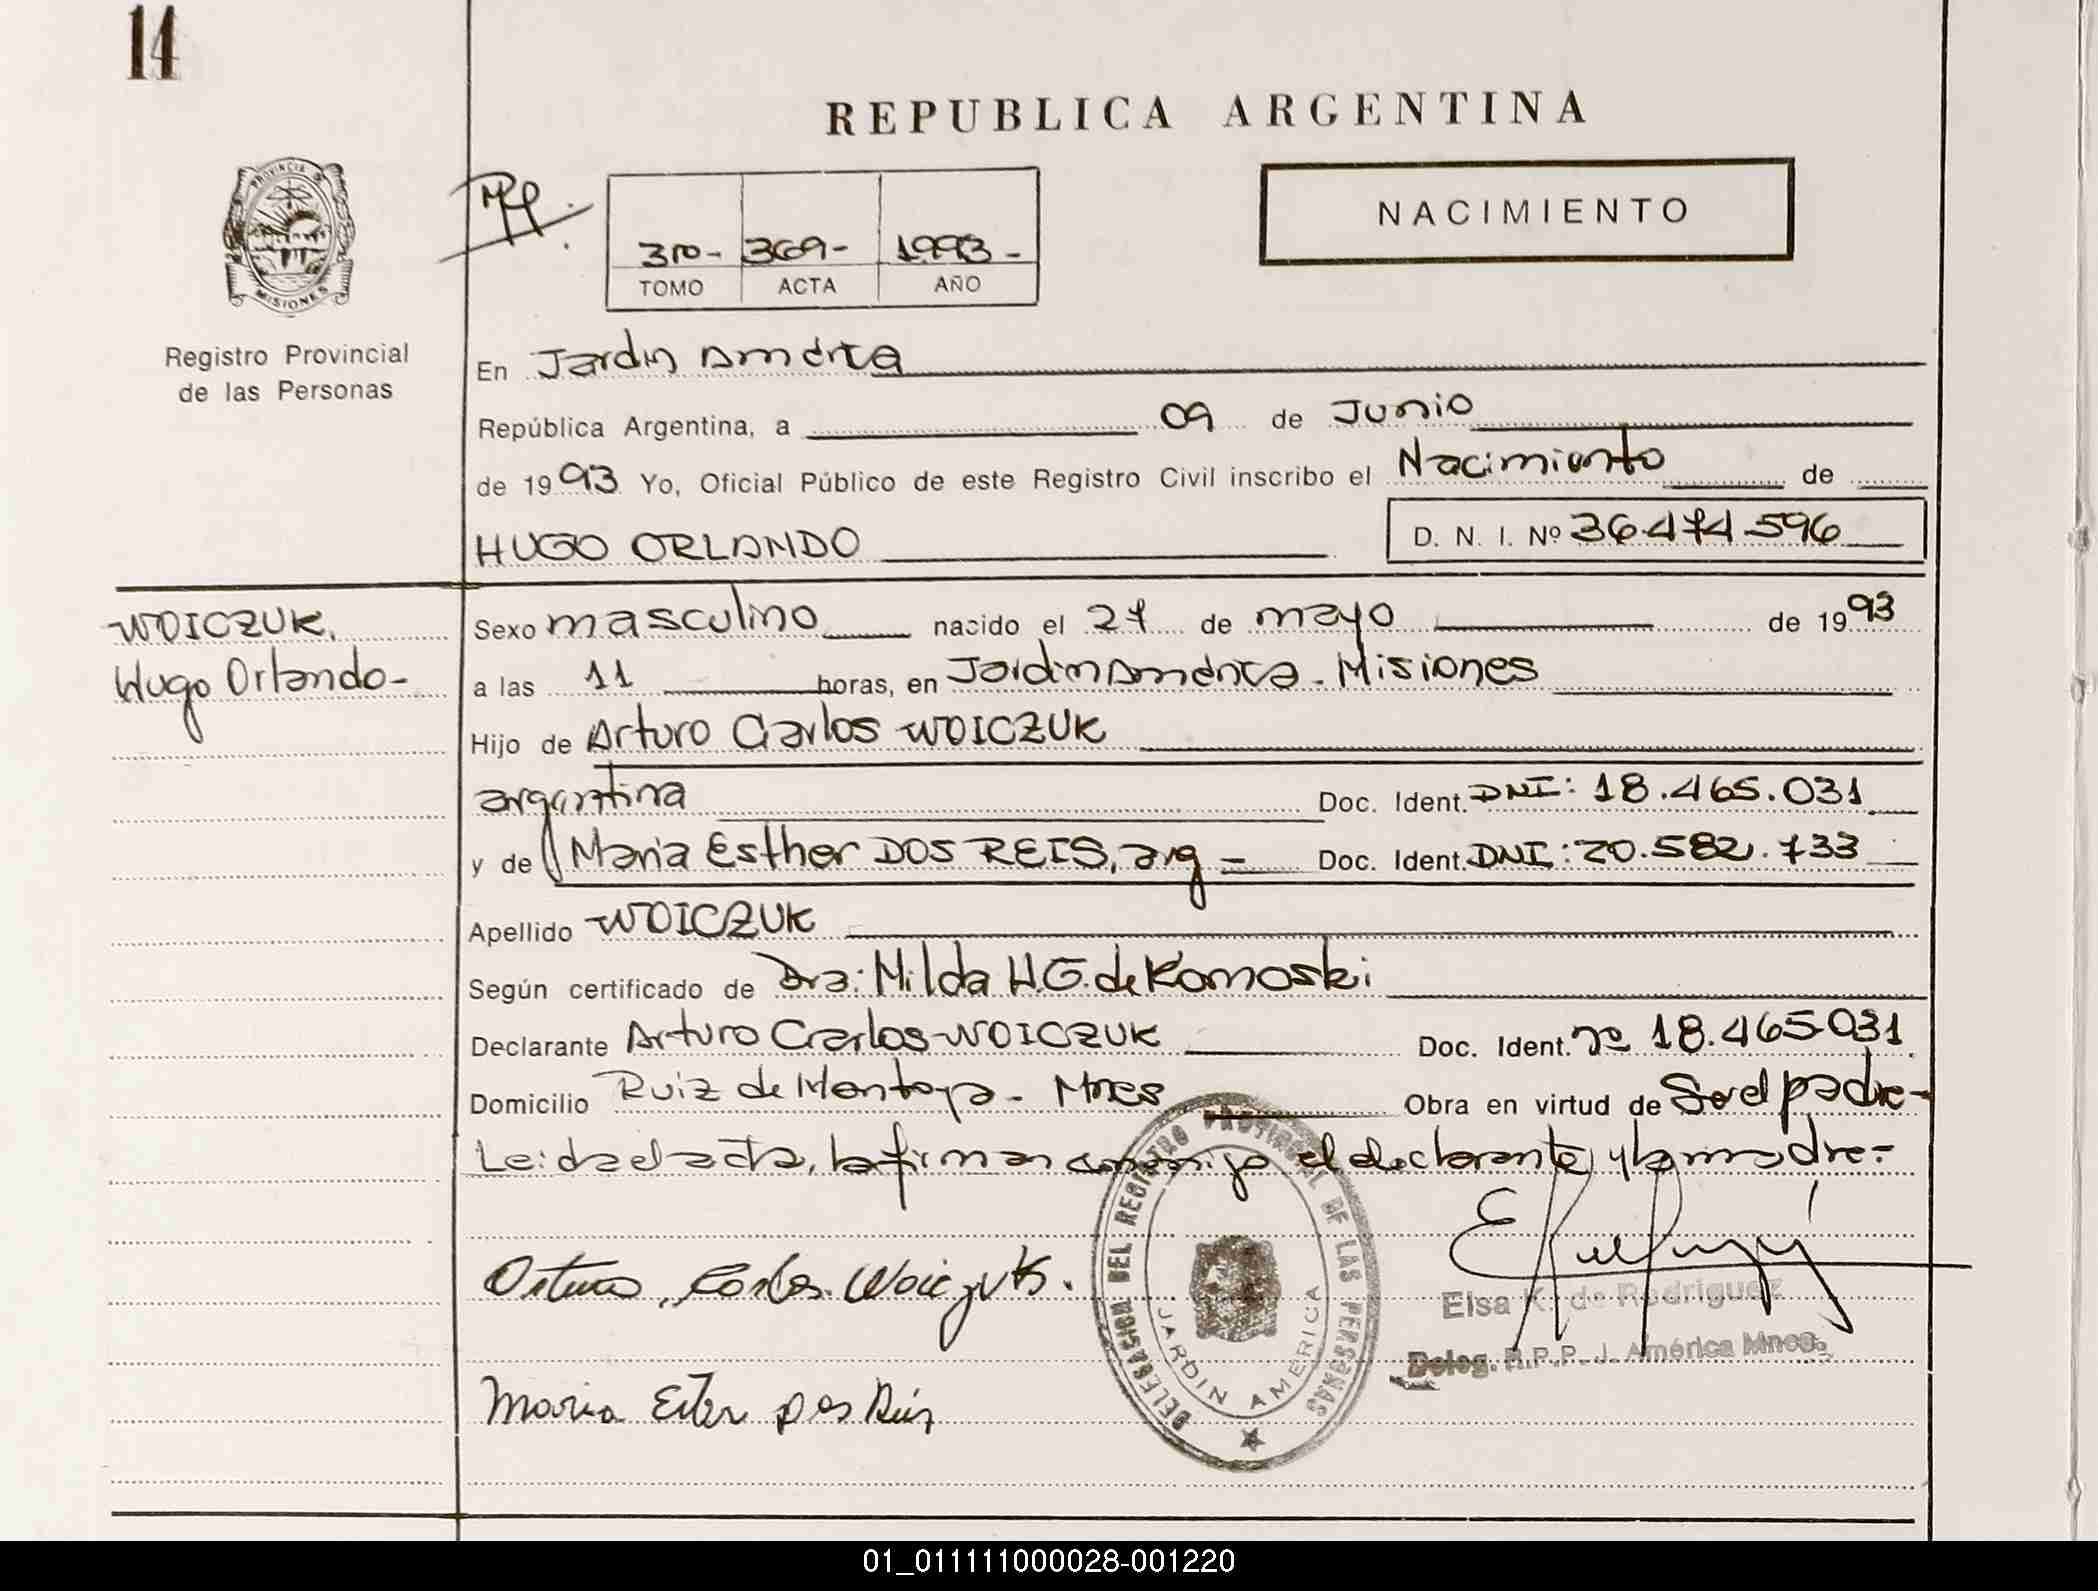 14
REPUBLICA ARGENTINA
PROVINCIA DE
MISIONES
Registro Provincial
de las Personas
369- 1993-
TOMO ACTA AÑO
NACIMIENTO
En Jardin América
República Argentina, a 09 de Junio
de 1993 Yo, Oficial Público de este Registro Civil inscribo el Nacimiento de
HUGO ORLANDO
D. N. I. Nº 36.474.596
WOICZUK,
Hugo Orlando-
Sexo masculino nacido el 27 de mayo de 1993
a las 11 horas, en Jardin América - Misiones
Hijo de Arturo Carlos WOICZUK
argentina Doc. Ident. DNI: 18.465.031
y de Maria Esther DOS REIS, arg - Doc. Ident. DNI: 20.582.733
Apellido WOICZUK
Según certificado de Dra: Milda H.G. de Komoski
Declarante Arturo Carlos WOICZUK Doc. Ident. nº 18.465.031
Domicilio Ruiz de Montoya - Mnes Obra en virtud de Ser el padre-
Leida el acta, la firman conmigo el declarante y la madre-
Arturo Carlos Woiczuk.
Maria Ester Dos Reis
DELEGACION DEL REGISTRO PROVINCIAL DE LAS PERSONAS
JARDIN AMERICA
Elsa K. de Rodriguez
Deleg. R.P.P. J. América Mnes.
01_011111000028-001220